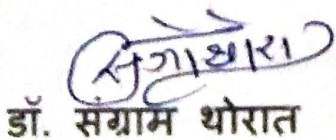 डॉ. संग्राम थोरात